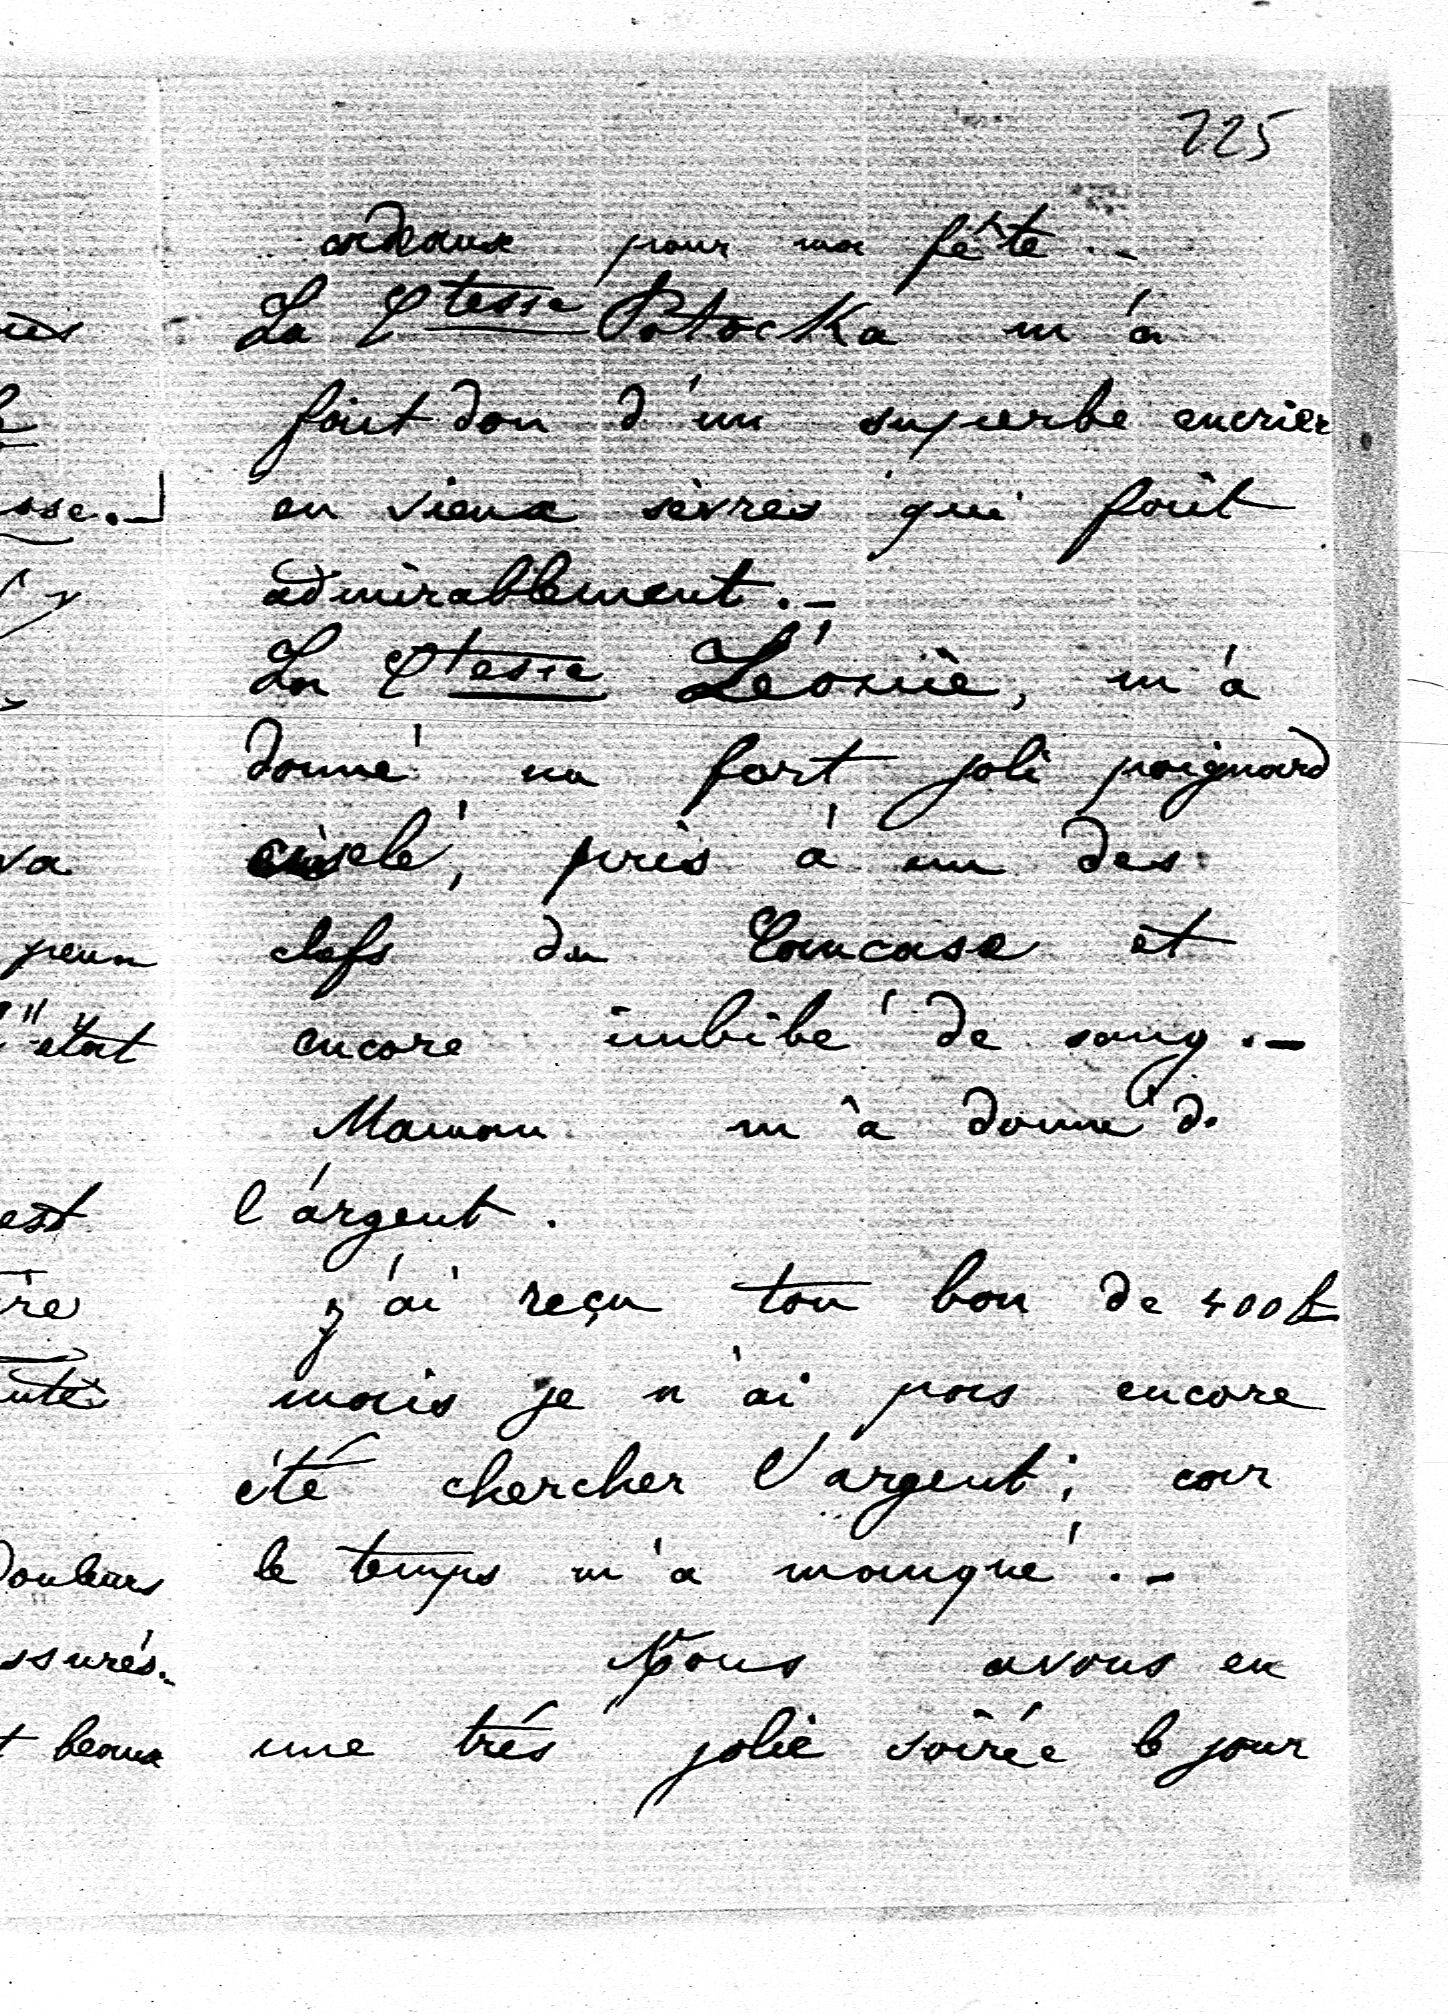 225
cadeaux pour ma fête.-
La Ctesse Potocka m'a
fait don d'un superbe encrier
en vieux sèvres qui fait
admirablement.-
La Ctesse Léonie, m'a
donné un fort joli poignard
ciselé, pris à un des
chefs du Caucase et
encore imbibé de sang.-
Maman m'a donné de
l'argent.
J'ai reçu ton bon de 400f
mais je n'ai pas encore
été chercher l'argent; car
le temps m'a manqué.-
Nous avons eu
une très jolie soirée le jour
sse.-
va
peur
était
est
ire
douleurs
ssurés.
t beaux